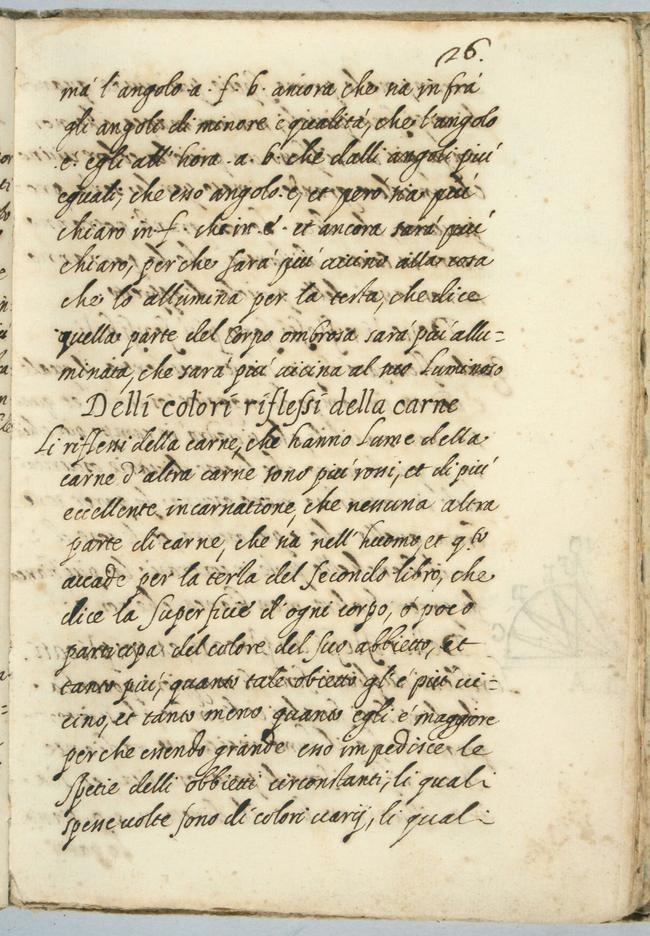 26.
má l'angolo a. f. b. ancora che sia infrá
gli angoli di minore equalitá, che l'angolo
e. egli all'hora .a. b. che dalli angoli piú
eguali, che esso angolo e, et peró sia piú
chiaro in f. che in e. et ancora sará piú
chiaro, perche sará piú uicino alla cosa
che lo allumina per la terta, che dice
quella parte del corpo ombrosa sará piú allu=
minata, che sará piú uicina al suo Luminoso
Delli colori riflessi della carne
Li riflessi della carne, che hanno Lume della
carne d'altra carne sono piú rossi, et di piú
eccellente incarnatione, che nessuna altra
parte di carne, che sia nell'huomo, et q.to
accade per la terla del secondo libro, che
dice la superficie d'ogni corpo, ó poco
participa del colore del suo abbietto, et
tanto piú, quanto tale obietto gl'é piú ui=
cino, et tanto meno quanto egli é maggiore
perche essendo grande esso impedisce le
spetie delli obbietti circonstanti, li quali
spesse uolte sono di colori uarij, li quali